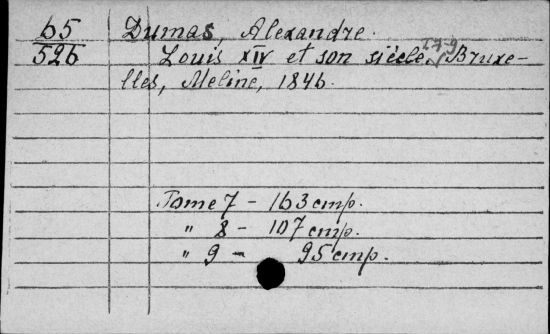 65 Dumas, Alexandre.
526 Louis XIV et son siècle, T. 7-9 Bruxe-
lles, Meline, 1846.
Tome 7 - 163 cmp.
" 8 - 107 cmp.
" 9 - 95 cmp.